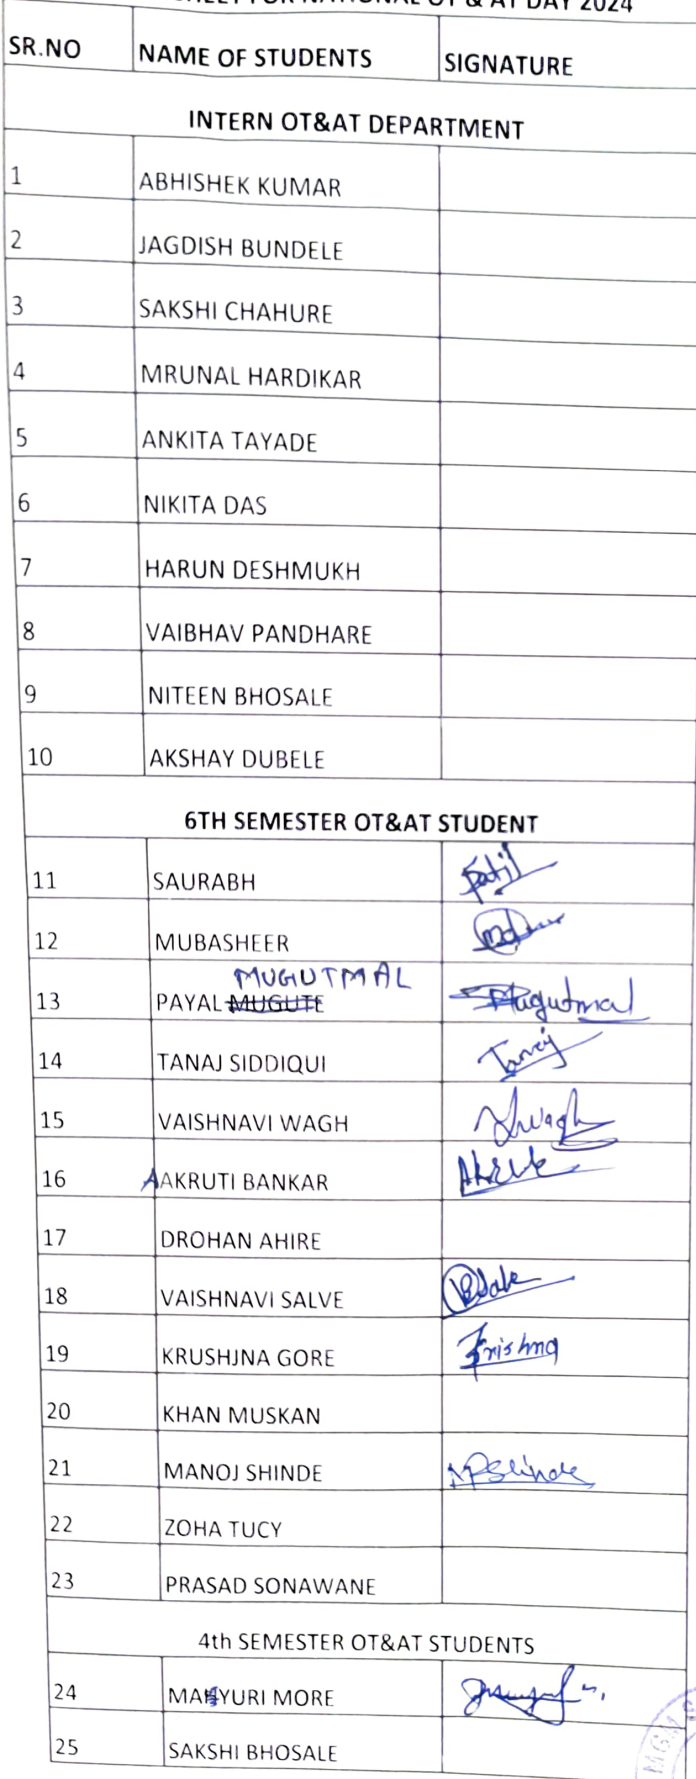 SHEET FOR NATIONAL OT & AT DAY 2024
SR.NO NAME OF STUDENTS SIGNATURE
INTERN OT&AT DEPARTMENT
1 ABHISHEK KUMAR
2 JAGDISH BUNDELE
3 SAKSHI CHAHURE
4 MRUNAL HARDIKAR
5 ANKITA TAYADE
6 NIKITA DAS
7 HARUN DESHMUKH
8 VAIBHAV PANDHARE
9 NITEEN BHOSALE
10 AKSHAY DUBELE
6TH SEMESTER OT&AT STUDENT
11 SAURABH Patil
12 MUBASHEER
MUGUTMAL
13 PAYAL MUGUTE Mugutmal
14 TANAJ SIDDIQUI
15 VAISHNAVI WAGH
16 AAKRUTI BANKAR
17 DROHAN AHIRE
18 VAISHNAVI SALVE
19 KRUSHJNA GORE Krishna
20 KHAN MUSKAN
21 MANOJ SHINDE MPShinde
22 ZOHA TUCY
23 PRASAD SONAWANE
4th SEMESTER OT&AT STUDENTS
24 MAYURI MORE
25 SAKSHI BHOSALE
MGM